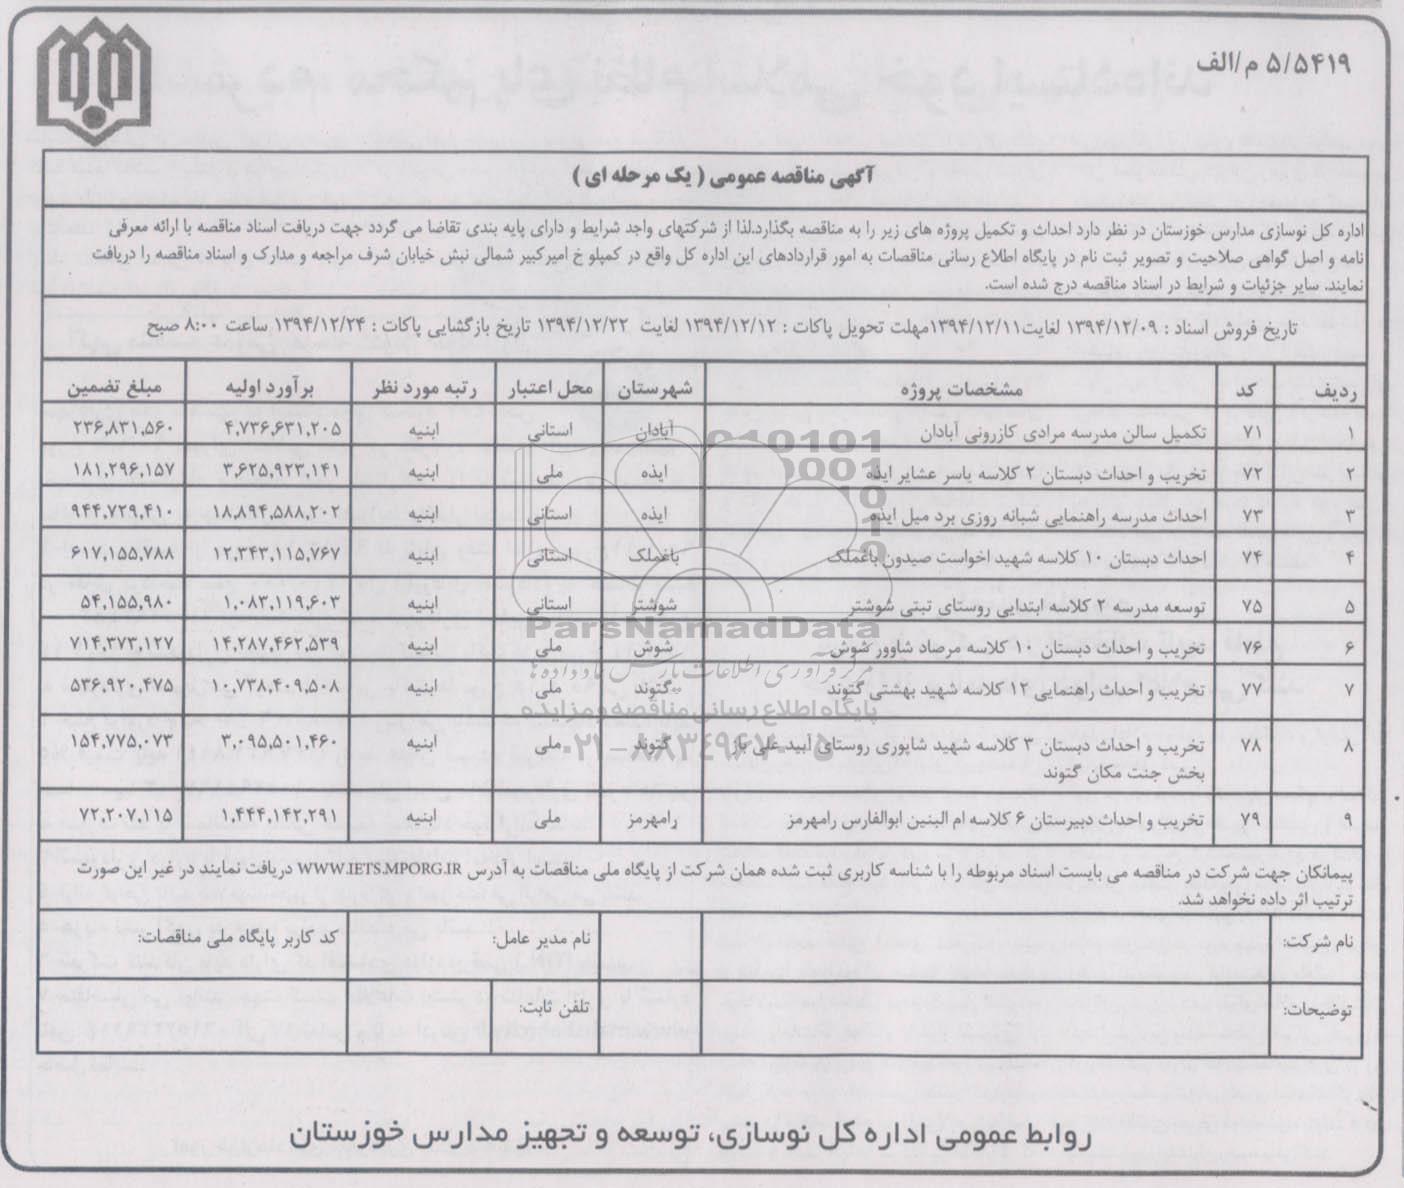 ۵/۵۴۱۹ م/الف
آگهی مناقصه عمومی ( یک مرحله ای )
اداره کل نوسازی مدارس خوزستان در نظر دارد احداث و تکمیل پروژه های زیر را به مناقصه بگذارد.لذا از شرکتهای واجد شرایط و دارای پایه بندی تقاضا می گردد جهت دریافت اسناد مناقصه با ارائه معرفی
نامه و اصل گواهی صلاحیت و تصویر ثبت نام در پایگاه اطلاع رسانی مناقصات به امور قراردادهای این اداره کل واقع در کمپلو خ امیرکبیر شمالی نبش خیابان شرف مراجعه و مدارک و اسناد مناقصه را دریافت
نمایند. سایر جزئیات و شرایط در اسناد مناقصه درج شده است.
تاریخ فروش اسناد : ۱۳۹۴/۱۲/۰۹ لغایت۱۳۹۴/۱۲/۱۱مهلت تحویل پاکات : ۱۳۹۴/۱۲/۱۲ لغایت ۱۳۹۴/۱۲/۲۲ تاریخ بازگشایی پاکات : ۱۳۹۴/۱۲/۲۴ ساعت ۸:۰۰ صبح
ردیف کد مشخصات پروژه شهرستان محل اعتبار رتبه مورد نظر برآورد اولیه مبلغ تضمین
۱ ۷۱ تکمیل سالن مدرسه مرادی کازرونی آبادان آبادان استانی ابنیه ۴,۷۳۶,۶۳۱,۲۰۵ ۲۳۶,۸۳۱,۵۶۰
۲ ۷۲ تخریب و احداث دبستان ۲ کلاسه یاسر عشایر ایذه ایذه ملی ابنیه ۳,۶۲۵,۹۲۳,۱۴۱ ۱۸۱,۲۹۶,۱۵۷
۳ ۷۳ احداث مدرسه راهنمایی شبانه روزی برد میل ایذه ایذه استانی ابنیه ۱۸,۸۹۴,۵۸۸,۲۰۲ ۹۴۴,۷۲۹,۴۱۰
۴ ۷۴ احداث دبستان ۱۰ کلاسه شهید اخواست صیدون باغملک باغملک استانی ابنیه ۱۲,۳۴۳,۱۱۵,۷۶۷ ۶۱۷,۱۵۵,۷۸۸
۵ ۷۵ توسعه مدرسه ۲ کلاسه ابتدایی روستای تبتی شوشتر شوشتر استانی ابنیه ۱,۰۸۳,۱۱۹,۶۰۳ ۵۴,۱۵۵,۹۸۰
۶ ۷۶ تخریب و احداث دبستان ۱۰ کلاسه مرصاد شاوور شوش شوش ملی ابنیه ۱۴,۲۸۷,۴۶۲,۵۳۹ ۷۱۴,۳۷۳,۱۲۷
۷ ۷۷ تخریب و احداث راهنمایی ۱۲ کلاسه شهید بهشتی گتوند گتوند ملی ابنیه ۱۰,۷۳۸,۴۰۹,۵۰۸ ۵۳۶,۹۲۰,۴۷۵
۸ ۷۸ تخریب و احداث دبستان ۳ کلاسه شهید شاپوری روستای آبید علی باز گتوند ملی ابنیه ۳,۰۹۵,۵۰۱,۴۶۰ ۱۵۴,۷۷۵,۰۷۳
بخش جنت مکان گتوند
۹ ۷۹ تخریب و احداث دبیرستان ۶ کلاسه ام البنین ابوالفارس رامهرمز رامهرمز ملی ابنیه ۱,۴۴۴,۱۴۲,۲۹۱ ۷۲,۲۰۷,۱۱۵
پیمانکان جهت شرکت در مناقصه می بایست اسناد مربوطه را با شناسه کاربری ثبت شده همان شرکت از پایگاه ملی مناقصات به آدرس WWW.IETS.MPORG.IR دریافت نمایند در غیر این صورت
ترتیب اثر داده نخواهد شد.
نام شرکت: نام مدیر عامل: کد کاربر پایگاه ملی مناقصات:
توضیحات: تلفن ثابت:
روابط عمومی اداره کل نوسازی، توسعه و تجهیز مدارس خوزستان
ParsNamadData
مرکز فرآوری اطلاعات پارس نماد داده ها
پایگاه اطلاع رسانی مناقصه و مزایده
۰۲۱-۸۸۳۴۹۶۷۰-۵